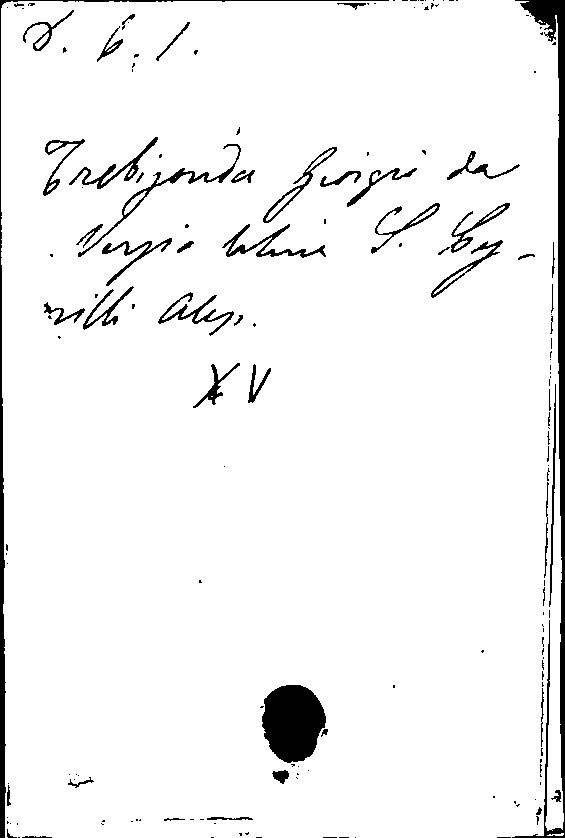 D. 6. 1.
Trebizonda Giorgio da
Versio latina S. Cy-
rilli Alex.
XV